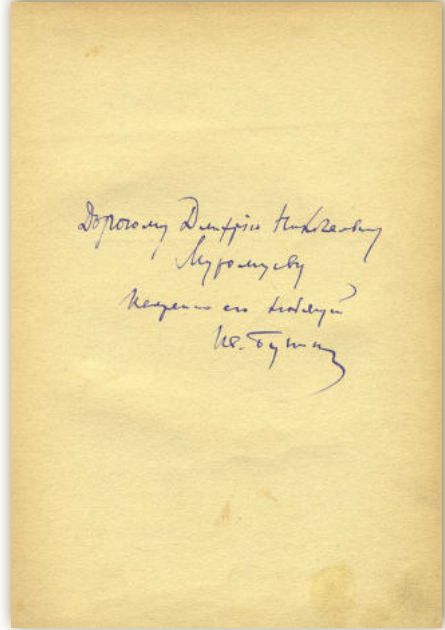 Дорогому Дмитрію Николаевичу
Муромцеву
искренно его любящій
Ив. Бунин